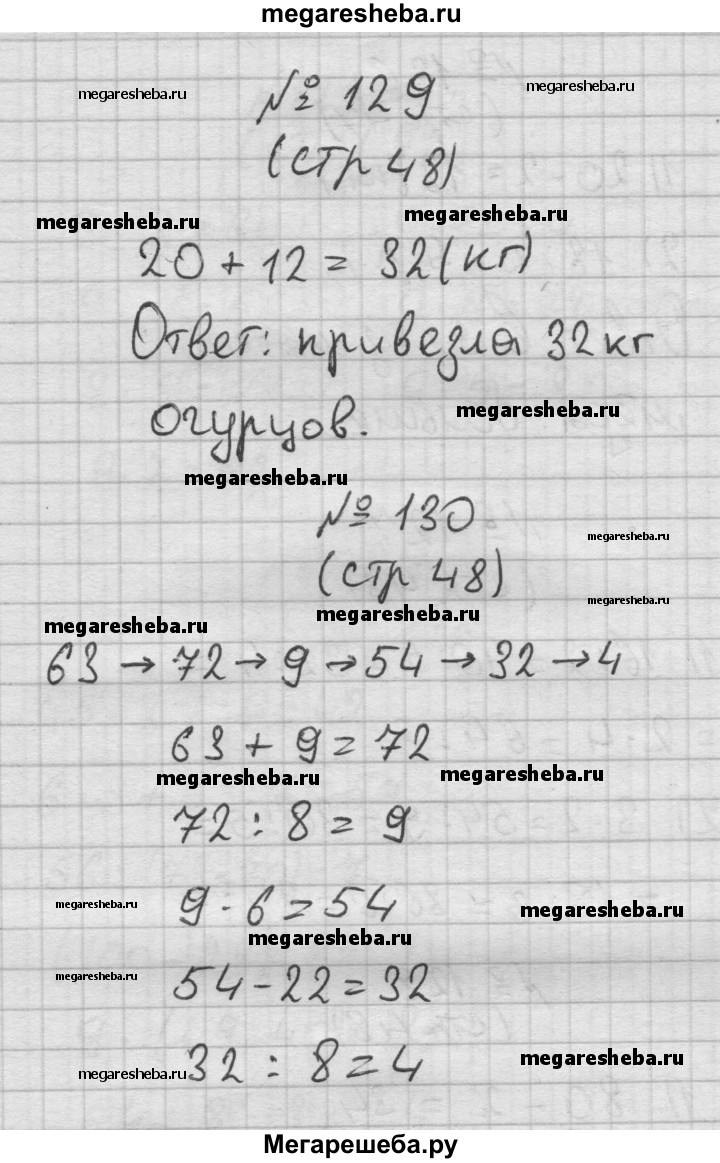 megaresheba.ru
№ 129
megaresheba.ru
megaresheba.ru
(стр 48)
megaresheba.ru
megaresheba.ru
20 + 12 = 32 (кг)
Ответ: привезла 32 кг
огурцов.
megaresheba.ru
megaresheba.ru
№ 130
megaresheba.ru
(стр 48)
megaresheba.ru
megaresheba.ru
megaresheba.ru
63 → 72 → 9 → 54 → 32 → 4
63 + 9 = 72
megaresheba.ru
megaresheba.ru
72 : 8 = 9
megaresheba.ru
9 · 6 = 54
megaresheba.ru
megaresheba.ru
megaresheba.ru
54 - 22 = 32
megaresheba.ru
32 : 8 = 4
megaresheba.ru
Мегарешеба.ру